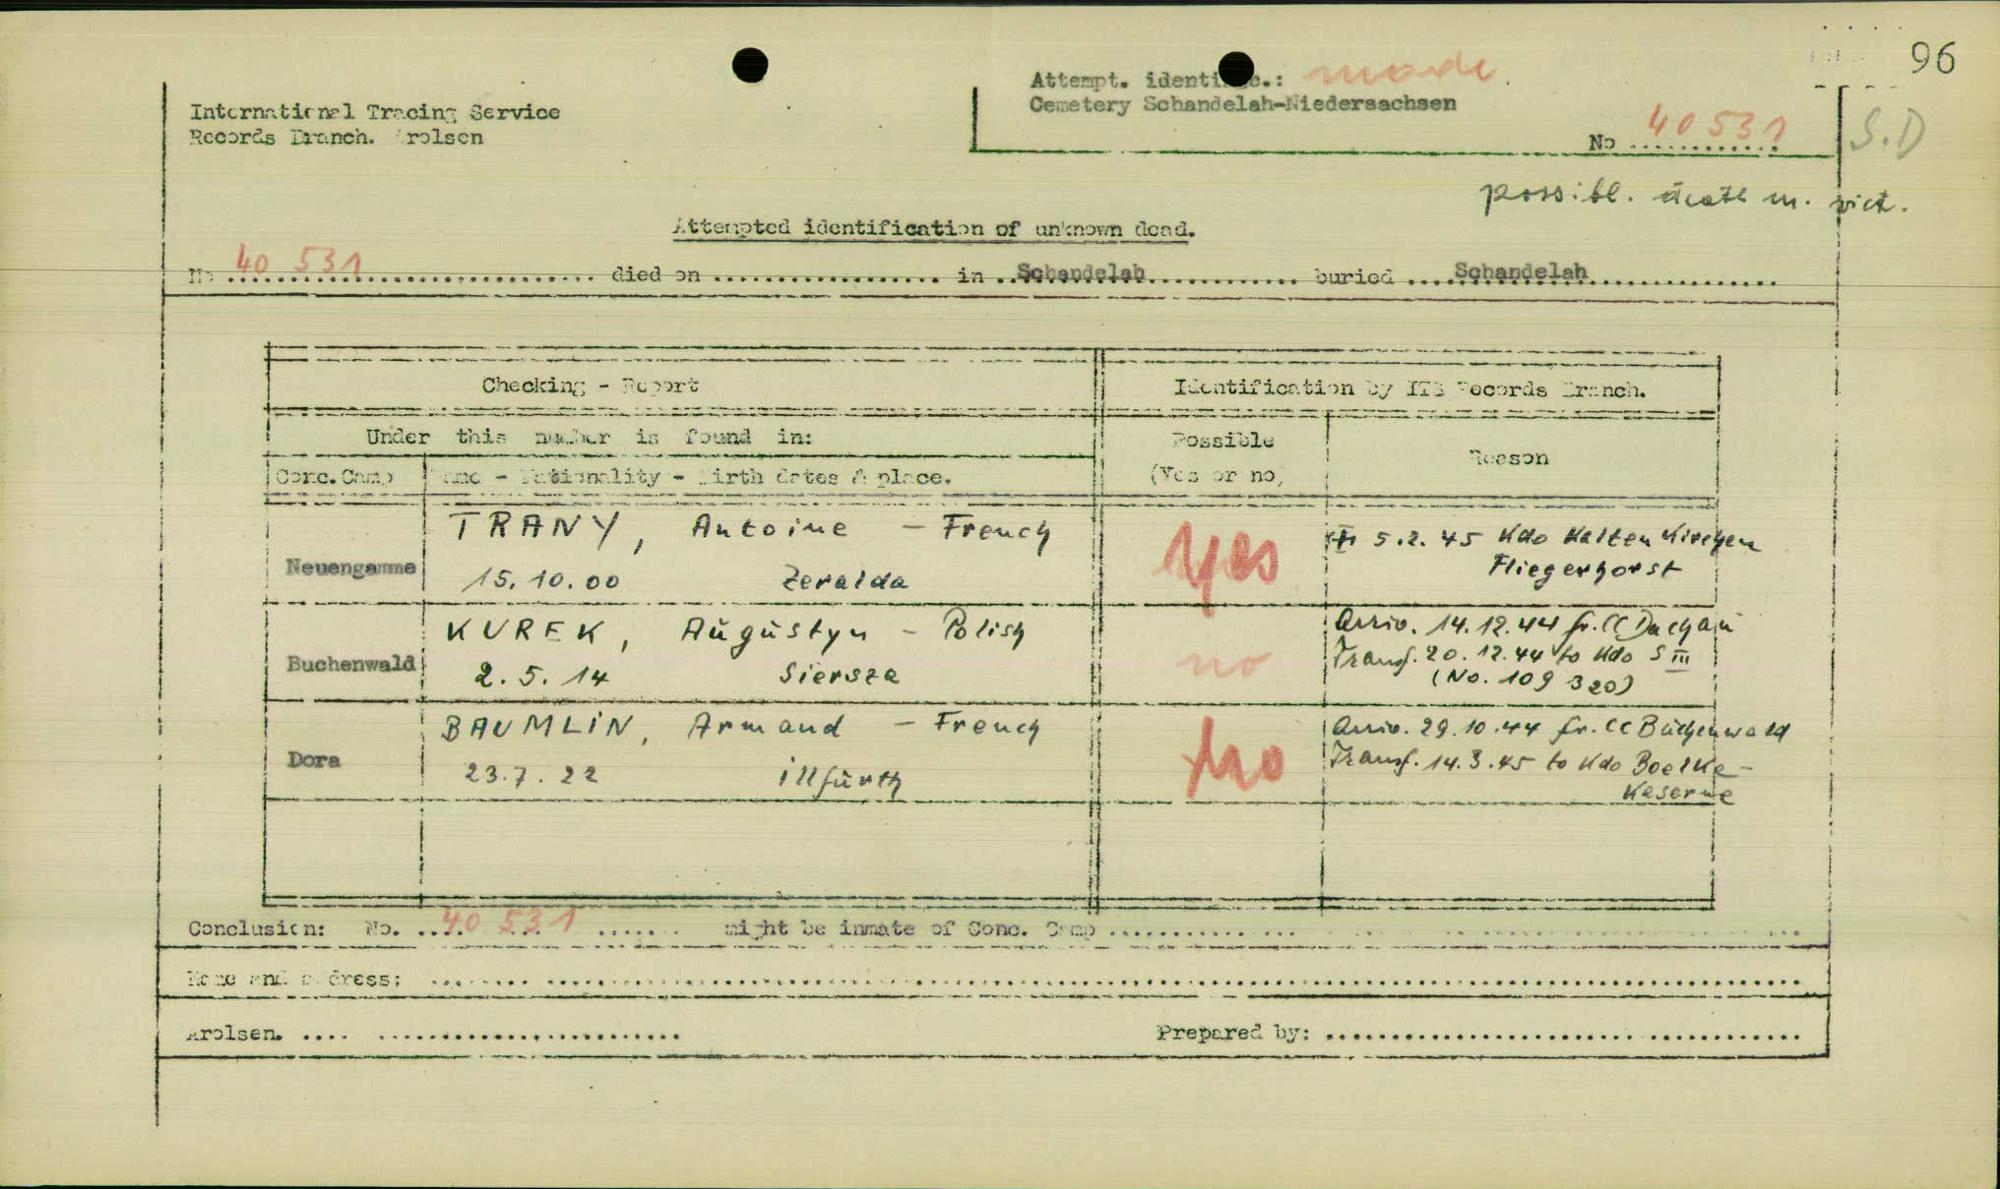 96
Attempt. identific.: made
Cemetery Schandelah-Niedersachsen
International Tracing Service
Records Branch. Arolsen
No 40 531
S.D
possibl. death m. vict.
Attempted identification of unknown dead.
No 40 531 died on in Schandelah buried Schandelah
Checking - Report
Identification by ITS Records Branch.
Under this number is found in:
Possible
(Yes or no)
Reason
Conc.Camp
Name - Nationality - Birth dates & place.
Neuengamme
TRANY, Antoine - French
15.10.00 Zeralda
yes
5.2.45 Kdo Kalten Kirchen
Fliegerhorst
Buchenwald
KUREK, Augustyn - Polish
2.5.14 Siersza
no
Arriv. 14.12.44 fr. CC Dachau
Transf. 20.12.44 to Kdo S III
(No. 109 320)
Dora
BAUMLIN, Armand - French
23.7.22 illfurth
no
Arriv. 29.10.44 fr. CC Buchenwald
Transf. 14.3.45 to Kdo Boelke-
Kaserne
Conclusion: No. 40 531 might be inmate of Conc. Camp
Name and address:
Arolsen.
Prepared by: